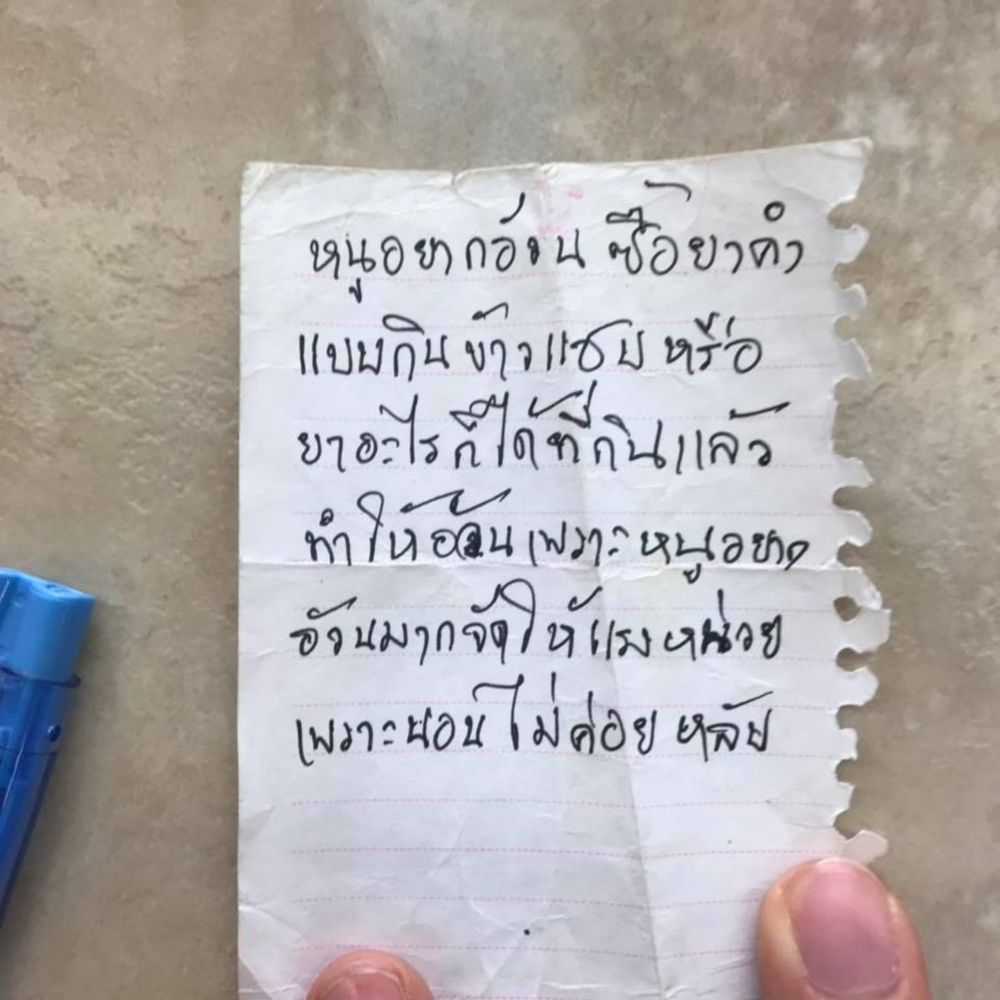 หนูอยากอ้วน ซื้อยาคำ
แบบกินข้าวแซบ หรือ
ยาอะไรก็ได้ที่กินแล้ว
ทำให้อ้วน เพราะหนูอยาก
อ้วนมากจัดให้แรงหน่วย
เพราะนอนไม่ค่อย หลับ